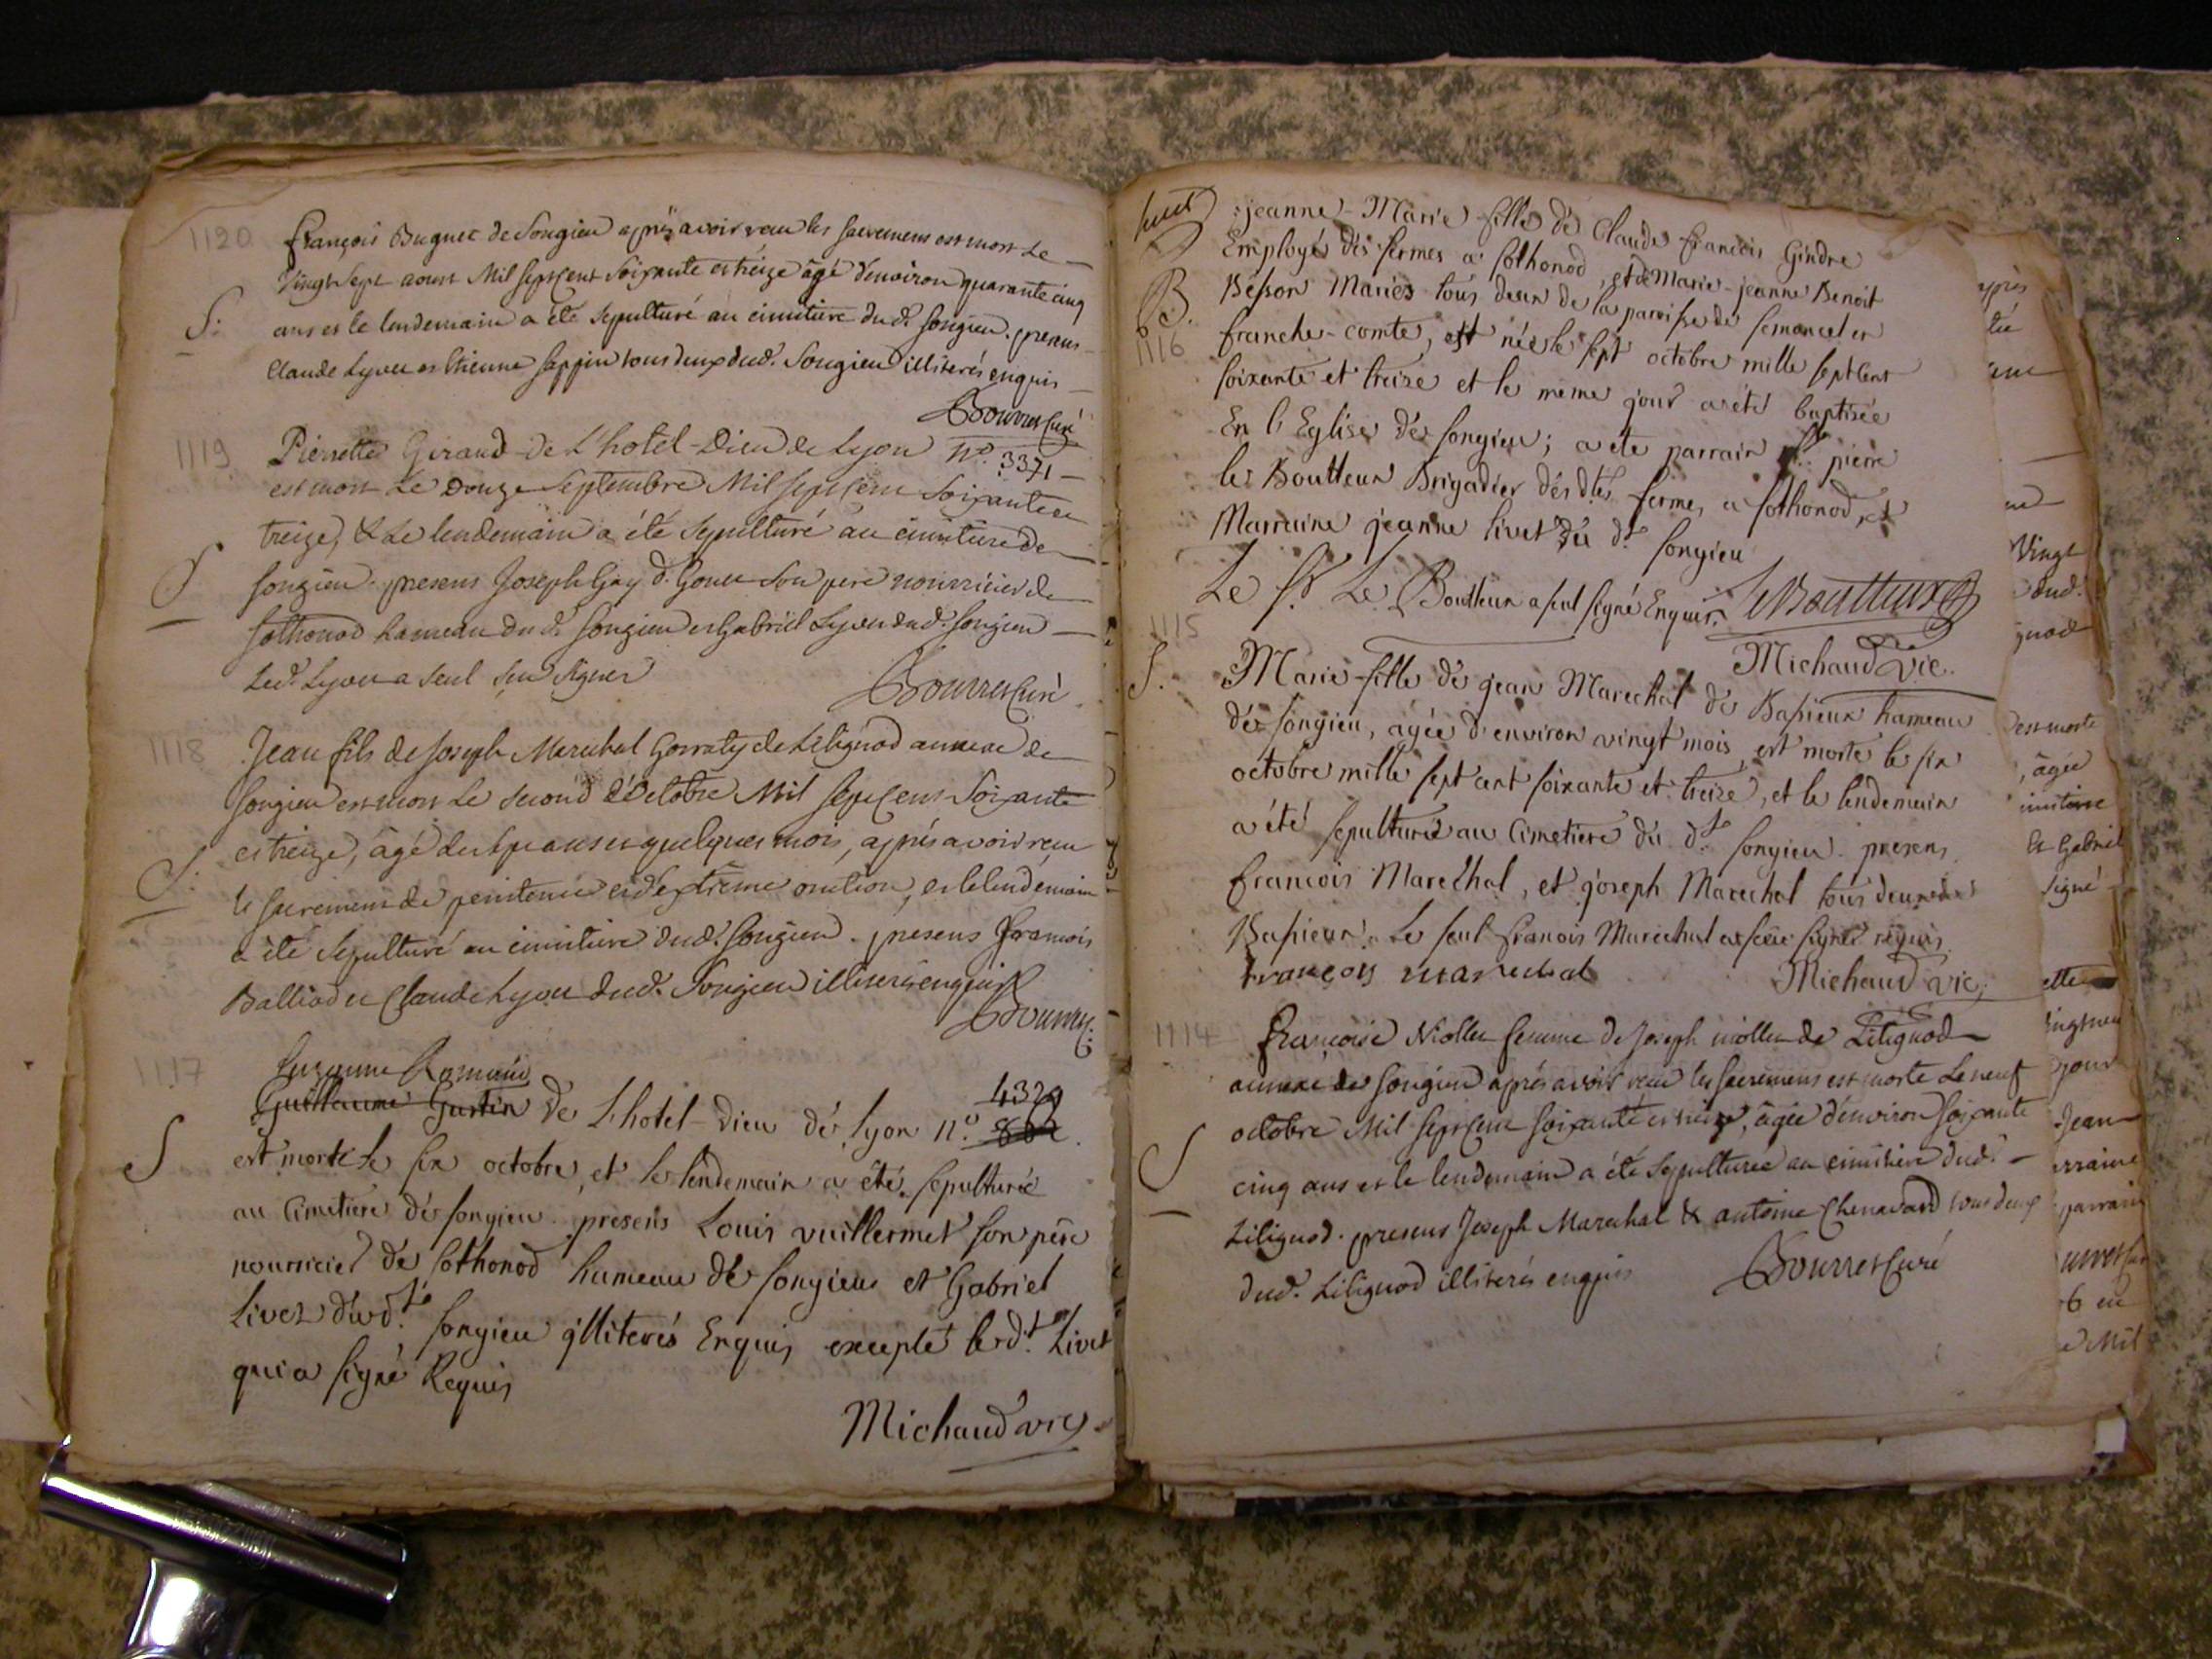 1120
françois Bugnet de Songieu après avoir reçu les sacremens est mort Le
vingt sept aoust Mil sept Cent Soixante et treize âgé d'environ quarante cinq
S. ans et le lendemain a été sepulturé au cimitiere dud. Songieu. presens
Claude Lyvet et Etienne Sappin tous deux dud. Songieu illiterés enquis
Bourret Curé
1119
Pierrette Giraud de L'hotel-Dieu de Lyon n°. 3371
est mort Le Douze Septembre Mil sept Cent Soixante et
treize, & Le lendemain a été Sepulturé au cimitiere de
S Songieu. presens Joseph Gay d. Gonet Son pere nourricier de
Sothonod hameau dud. Songieu et Gabriel Lyvet dud. Songieu
Led. Lyvet a Seul Sçu signer
Bourret Curé
1118
Jean fils de Joseph Marechal Gorraty de Liliignod annexe de
Songieu est mort Le Second d'Octobre Mil Sept Cent Soixante
et treize, âgé de sept ans et quelques mois, après avoir reçu
S. les sacremens de penitence et d'extrême onction, et le lendemain
a été Sepulturé au cimitiere dud. Songieu. presens François
Balliod et Claude Lyvet dud. Songieu illiterés enquis
Bourret C.
1117
Suzanne Romain
Guillaume Gustin de L'hotel-dieu dé Lyon n°. 4329
S est morte le six octobre, et le lendemain a été sepulturée
au Cimetiere dé songieu. presens Louis vuillermet son père
nourricier dé Sothonod hameau dé songieu et Gabriel
Livet dud.t songieu illiterés Enquis excepté le d.t Livet
qui a signé Requis
Michaud vic.
jeanne-Marie fille dé Claude francois Gindre
Employé dés fermes a sothonod, et dé Marie-jeanne Benoit
B. Besson Mariés tous deux de la paroisse dé semoncel en
1116
franche-comté, est née le sept octobre mille sept cent
soixante et treize et le meme jour a été baptisée
En l'Eglise dé songieu; a eté parrain s.r pierre
le Boutteux Brigadier dés d.tes fermes a sothonod, et
Marraine jeanne livet du d.t songieu
Le S.r Le Boutteux a seul signé Enquis. LeBoutteux
Michaud Vic.
1115
S. Marie fille dé jean Marechal dé Bassieux hameau
dé songieu, agée d'environ vingt mois est morte le six
octobre mille sept cent soixante et treize, et le lendemain
a été sepulturée au Cimetiere du d.t songieu. presens
francois Marechal, et joseph Marechal tous deux de
Bassieux. Le seul francois Marechal a sceu signer requis
françois marechal
Michaud vic.
1114
françoise Niollet femme de Joseph niollet de Lilignod
annexe de Songieu après avoir reçu les sacremens est morte Le neuf
octobre Mil Sept Cent soixante et treize, âgée d'environ soixante
S cinq ans et le lendemain a été Sepulturée au cimitiere dud.
Lilignod. presens Joseph Marechal & antoine Chenavard tous deux
dud. Lilignod illiterés enquis Bourret Curé
Vingt
dud.
gnod
est morte
, âgée
imitiere
Et Gabriel
signé
jour
Jean
parrain
Mil